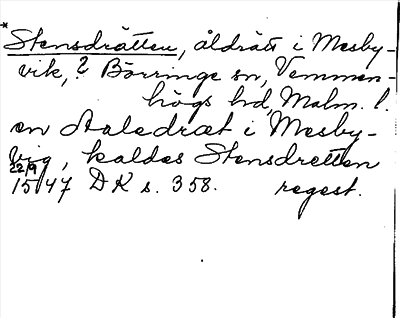 * Stensdrätten, åldrätt i Mesby-
vik, ? Börringe sn, Vemmen-
högs hd, Malm. l.
en Aalsdræt i Mesby-
vig, kaldes Stensdretten
22/9
1547 DK s. 358. regest.